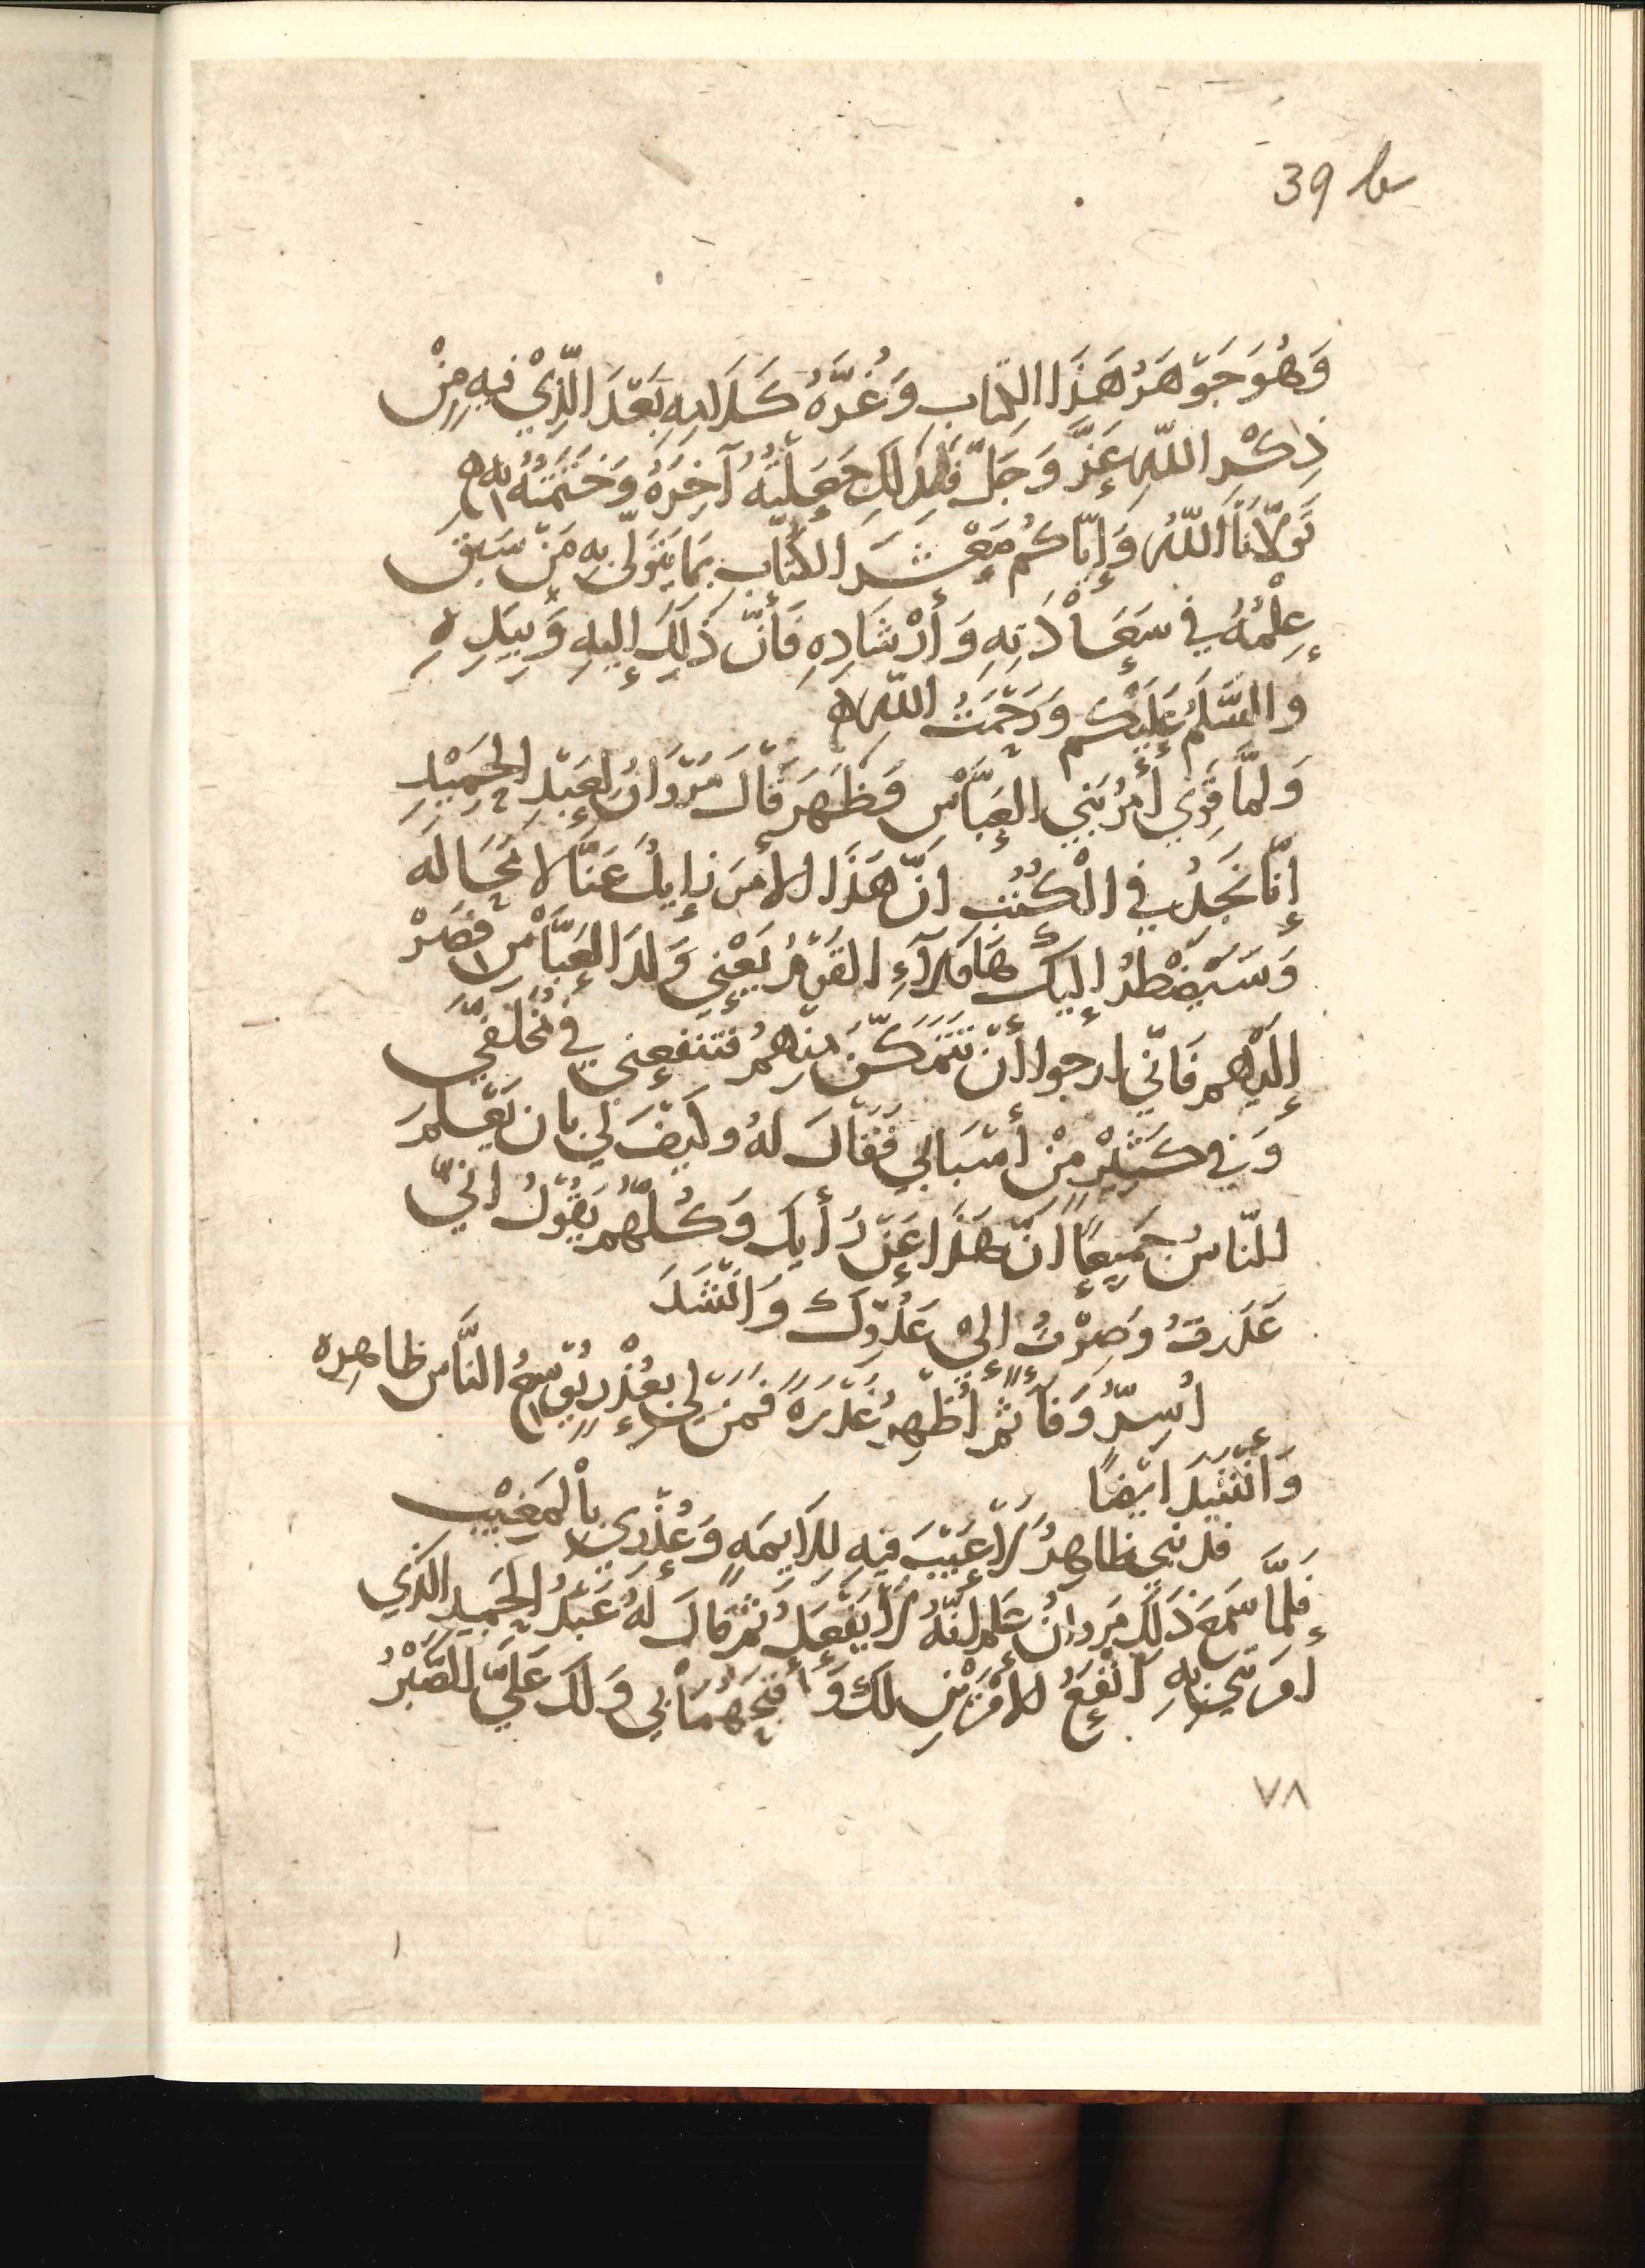 39 b
وَهُوَ جَوْهَرُ هَذَا الكِتَابِ وَغُرَّةُ كَلَامِهِ بَعْدَ الَّذِيْ فِيهِ مِنْ
ذِكْرِ اللّهِ عَزَّ وَجَلّ فَلِذَلِكَ جَعَلْتُهُ آخِرَهُ وَخَتَمْتُهُ بِهِ
تَولّانَا اللّهُ وَإِيّاكُم مَعْشَرَ الكُتّابِ بِمَا يَتَوَلّى بِهِ مَنْ سَبَقَ
عِلْمُهُ فِي سَعَاْدَتِهِ وَأرْشَادِهِ فَأنّ ذَلِكَ إليهِ وَبِيَدِهِ
وَالسَّلَمُ عَلَيْكُم وَرَحْمَتُ اللّهِ
وَلمَّا قَوِيَ أَمْرُ بَنِي العَبَّاْسِ وَظَهَرَ قَالَ مَرْوَانُ لِعَبْدِ الحَمِيْدِ
إِنَّا نَجِدُ فِي الْكُتُبِ انّ هَذَا الامرَ زايلُ عَنَّا لا مَحَالَه
وَسَيَضْطَرُ إِلَيكَ هَاوَلآءِ القَوْمُ يَعْنِي وَلَدَ العَبَّاْسِ فَصِرْ
إِلَيْهِم فَانّي ارجوا أنْ تَتَمَكَّنَ مِنْهمُ فَتَنْفَعِني فِي مُخَلَّفِيَّ
وَفِي كَثِيْرٍ مِنْ أمْسَبَابي فَقَالَ لَهُ وَكَيْفَ لِي بان يَعْلَمَ
الناسُ جَمِيعًا انّ هَذَا عَنْ رَأيِكَ وَكُلّهُم يَقُوْلُ انّي
غَدَرتُ وَصِرْتُ إِلى عَدُوّكَ وَانْشَدَ
اُسِرُّ وَفَاً ثمّ اُظْهِرُ غَدْرَةً فَمَنْ لِي بِعُذْرٍ يُوْسِعُ النَّاسَ ظَاهِرِه
وَانْشَدَ ايْضًا
فذنبي ظاهِرُ لَا عَيْبَ فِيهِ لِلَايمَهٍ وَعُذْرِي بِاْلمَغِيْبِ
فَلمَّا سَمِعَ ذَلِكَ مَروانُ عَلِمَ أنّهُ لَا يَفْعَلُ ثُمّ قَالَ لَهُ عَبْدُ الحَمِيدِ الذي
أمَرتَنِي بِهِ أنْفَعُ الامْرَيْنِ لَكَ وَأقْبَحُهُمَا بِي وَلَكَ عَلَيَّ الصَّبْرُ
٧٨